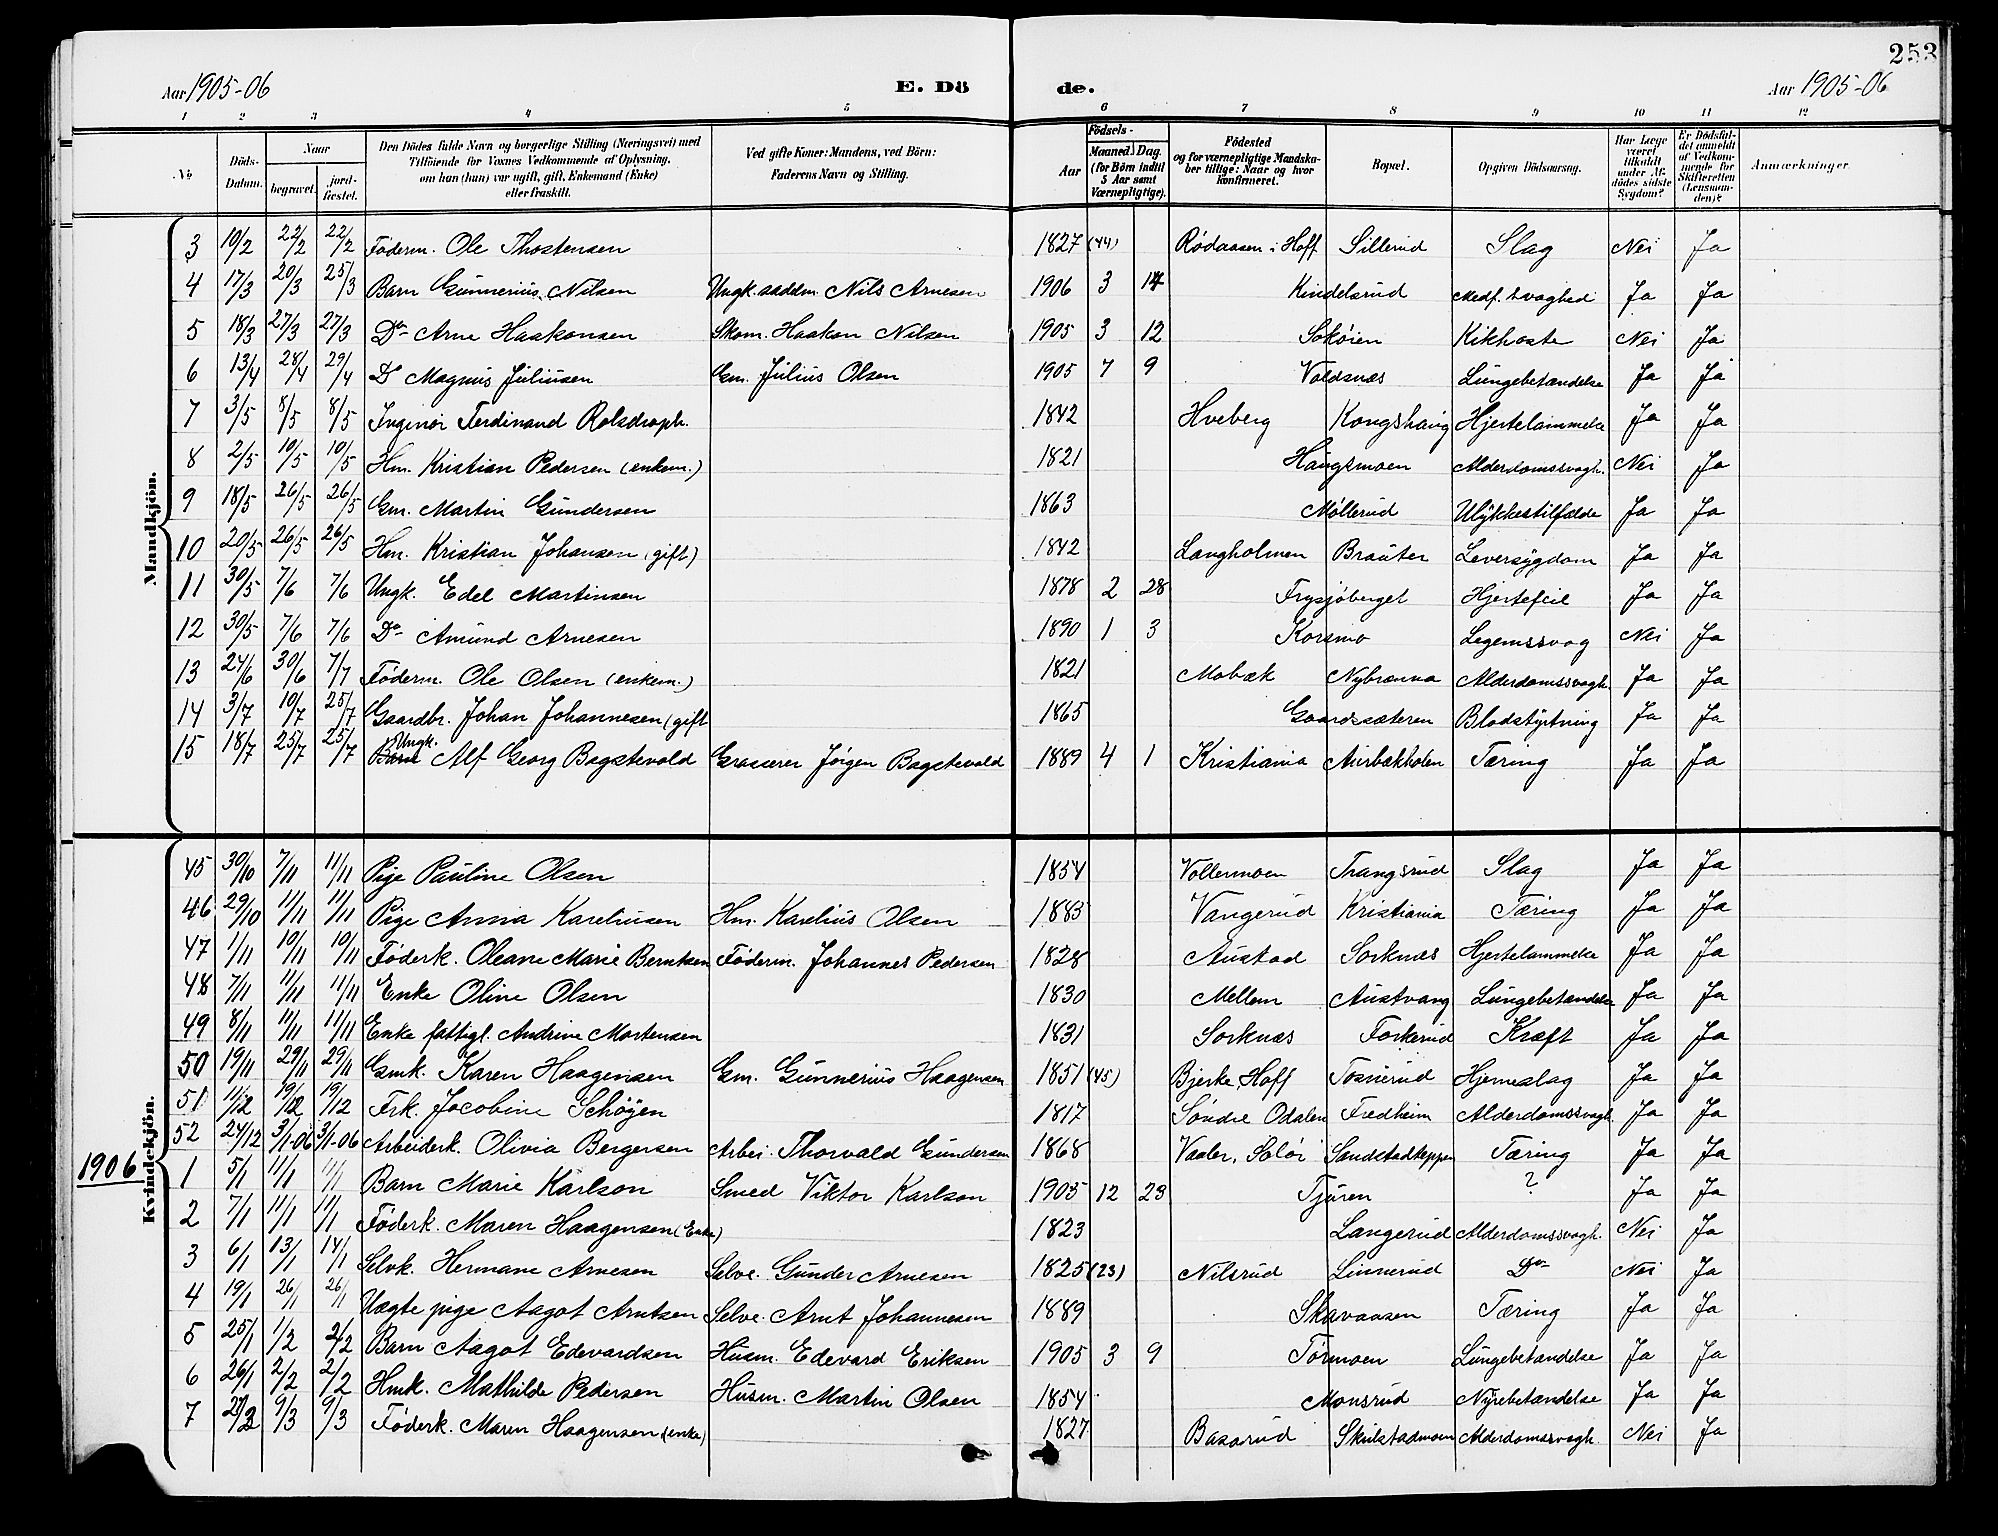 253
Aar 1905-06 E. Dö de. Aar 1905-06
1 2 3 4 5 6 7 8 9 10 11 12
No. Döds-Datum. Naar begravet. jord-fæstet. Den Dödes fulde Navn og borgerlige Stilling (Næringsvei) med Tilföiende for Voxnes Vedkommende af Oplysning, om han (hun) var ugift, gift, Enkemand (Enke) eller fraskilt. Ved gifte Koner: Mandens, ved Börn: Faderens Navn og Stilling. Födsels- Aar Maaned. Dag. (for Börn indtil 5 Aar samt Værnepligtige). Födested og for værnepligtige Mandskaber tillige: Naar og hvor konfirmeret. Bopæl. Opgiven Dödsaarsag. Har Læge været tilkaldt under Afdödes sidste Sygdom? Er Dödsfaldet anmeldt af Vedkommende for Skifteretten (Lensmanden)? Anmærkninger.
Mandkjön.
3 19/2 22/2 22/2 Föderm. Ole Thostensen 1827 (44) Rødaasen i Hoff Sillerud Slag Nei Ja
4 17/3 20/3 25/3 Barn Gunnerius Nilsen Ungk. saddm. Nils Arnesen 1906 3 14 Kindelsrud Medf. svaghed Ja Ja
5 18/3 27/3 27/3 Do Arne Haakonsen Skom. Haakon Nilsen 1905 3 12 Sokøien Kikhoste Nei Ja
6 13/4 28/4 29/4 Do Magnus Juliusen Gm. Julius Olsen 1905 7 9 Voldsnæs Lungebetændelse Ja Ja
7 3/5 8/5 8/5 Ingeniør Ferdinand Rolsdroph. 1842 Hveberg Kongshaug Hjertelammelse Ja Ja
8 2/5 10/5 10/5 Hm. Kristian Pedersen (enkem.) 1821 Haugsmoen Alderdomssvagh. Nei Ja
9 18/5 26/5 26/5 Gm. Martin Gundersen 1863 Møllerud Ulykkestilfælde Ja Ja
10 20/5 26/5 26/5 Hm. Kristian Johansen (gift) 1842 Langholmen Brauter Leversygdom Ja Ja
11 30/5 7/6 7/6 Ungk. Edel Martinsen 1878 2 28 Frysjøberget Hjertefeil Ja Ja
12 30/5 7/6 7/6 Do Amund Arnesen 1890 1 3 Korsmo Legemssvag Nei Ja
13 24/6 30/6 7/7 Föderm. Ole Olsen (enkem.) 1821 Mobæk Nybrænna Alderdomssvagh. Ja Ja
14 3/7 10/7 25/7 Gaardbr. Johan Johannesen (gift 1865 Gaardssæteren Blodstyrtning Ja Ja
15 18/7 25/7 25/7 Barn Ungk. Alf Georg Bagstevold Grosserer Jørgen Bagstevold 1889 4 1 Kristiania Aurbækholen Tæring Ja Ja
Kvindekjön.
45 30/10 7/11 11/11 Pige Pauline Olsen 1854 Vollermoen Trangsrud Slag Ja Ja
46 29/10 11/11 11/11 Pige Anna Kareliusen Hm. Karelius Olsen 1883 Vangerud Kristiania Tæring Ja Ja
47 1/11 10/11 10/11 Föderk. Oleane Marie Berntsen Föderm. Johannes Pedersen 1828 Austad Sorknæs Hjertelammelse Ja Ja
48 7/11 11/11 11/11 Enke Oline Olsen 1830 Mellem Austvang Lungebetændelse Ja Ja
49 8/11 11/11 11/11 Enke fattigl. Andrine Mortensen 1831 Sorknæs Forkerud Kræft Ja Ja
50 19/11 29/11 29/11 Gmk. Karen Haagensen Gm. Gunnerius Haagensen 1851 (45) Bjerke, Hoff Tosserud Hjerneslag Ja Ja
51 11/12 19/12 19/12 Frk. Jacobine Schøyen 1817 Søndre Odalen Fredheim Alderdomssvagh. Ja Ja
52 24/12 3/1-06 3/1-06 Arbeiderk. Olivia Bergersen Arbei. Thorvald Gundersen 1868 Vaaler, Solør Sandstadkeppen Tæring Ja Ja
1906 1 5/1 11/1 11/1 Barn Marie Karlson Smed Viktor Karlson 1905 12 23 Tjuren ? Ja Ja
2 7/1 11/1 11/1 Föderk. Maren Haagensen (Enke) 1823 Langerud Alderdomssvagh. Nei Ja
3 6/1 13/1 14/1 Selvk. Hermane Arnesen Selve. Gunder Arnesen 1825 (23) Nilsrud Linnerud Do Nei Ja
4 19/1 26/1 26/1 Uægte pige Aagot Arntsen Selve. Arnt Johannesen 1889 Skavaasen Tæring Ja Ja
5 25/1 1/2 2/2 Barn Aagot Edevardsen Husm. Edevard Eriksen 1905 3 9 Tørmoen Lungebetændelse Ja Ja
6 26/1 2/2 2/2 Hmk. Mathilde Pedersen Husm. Martin Olsen 1854 Monsrud Nyrebetændelse Ja Ja
7 27/2 9/3 9/3 Föderk. Maren Haagensen (enke) 1827 Basarud Skulstadmoen Alderdomssvagh. Nei Ja